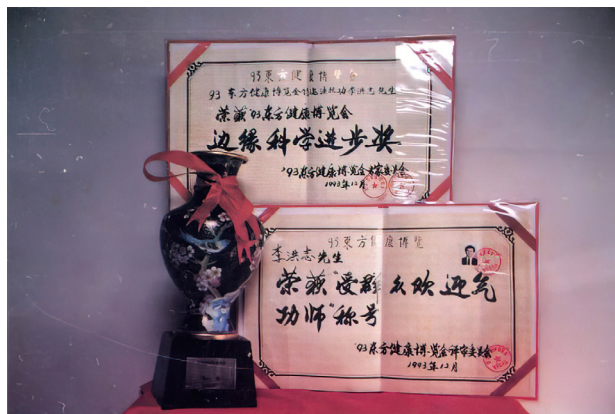 93東方健康博覽会
93 东方健康博览会
李洪志先生
荣获'93东方健康博览会
边缘科学进步奖
'93东方健康博览会专家委员会
1993年12月
93東方健康博覽
李洪志先生
荣获"受群众欢迎气
功师"称号
'93东方健康博览会评审委员会
1993年12月